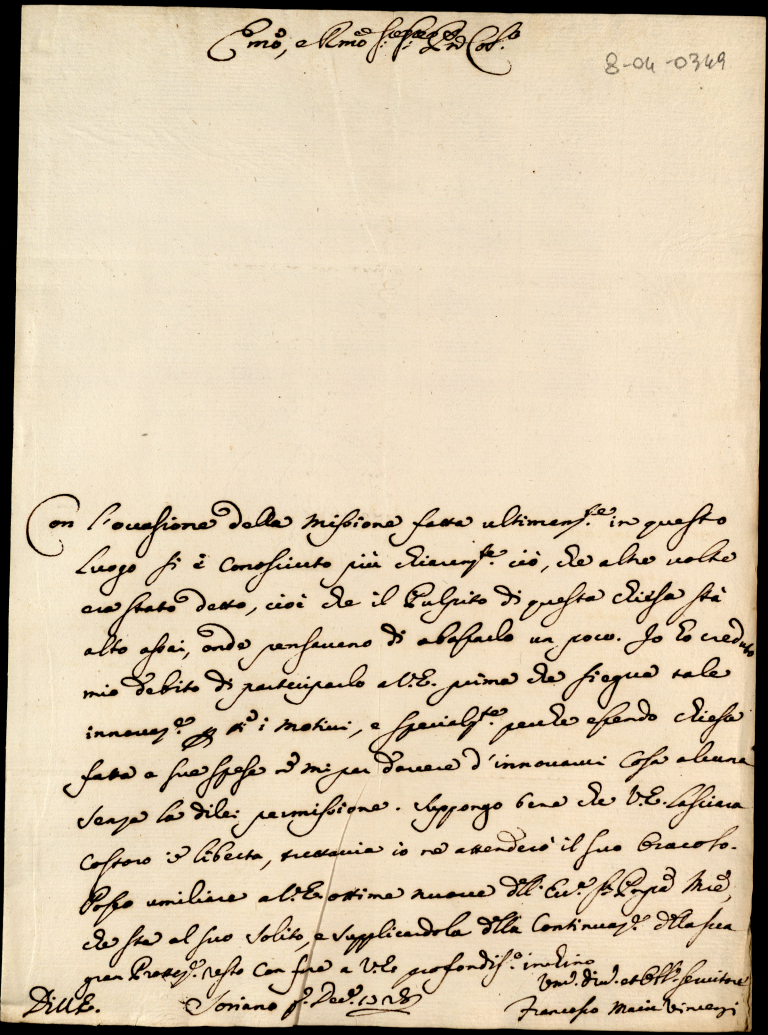 Emo, e Rmo Sig: Sig: Pne Col.o
8-04-0349
Con l'occasione della Missione fatta ultimam.te in questo
Luogo si è conosciuto più chiaram.te ciò, che altre volte
era stato detto, cioè che il Pulpito di questa chiesa stà
alto assai, onde pensavano di abassarlo un poco. Io hò creduto
mio debito di parteciparlo a V.E. prima che siegua tale
innovaz.e p tt.i i Motivi, e specialm.te perche essendo chiesa
fatta a sue spese nō mi par dovere d'innovarvi Cosa alcuna
senza la dilei permissione. Suppongo bene che V.E. lasciarà
Costoro in libertà, tuttavia io ne attenderò il suo Oracolo.
Posso umiliare a V.E. ottime nuove dll' Ecc.mo Sig.r Pnpe Mio,
che stà al suo solito, e supplicandola dlla Continuaz.e dlla sua
gran Protez.e resto con fare a V.E. profondis.o inchino
Di V.E. Soriano p.o Dec.e
Um.o div.o et Obl.o servitore
Francesco Maria Vincenzi